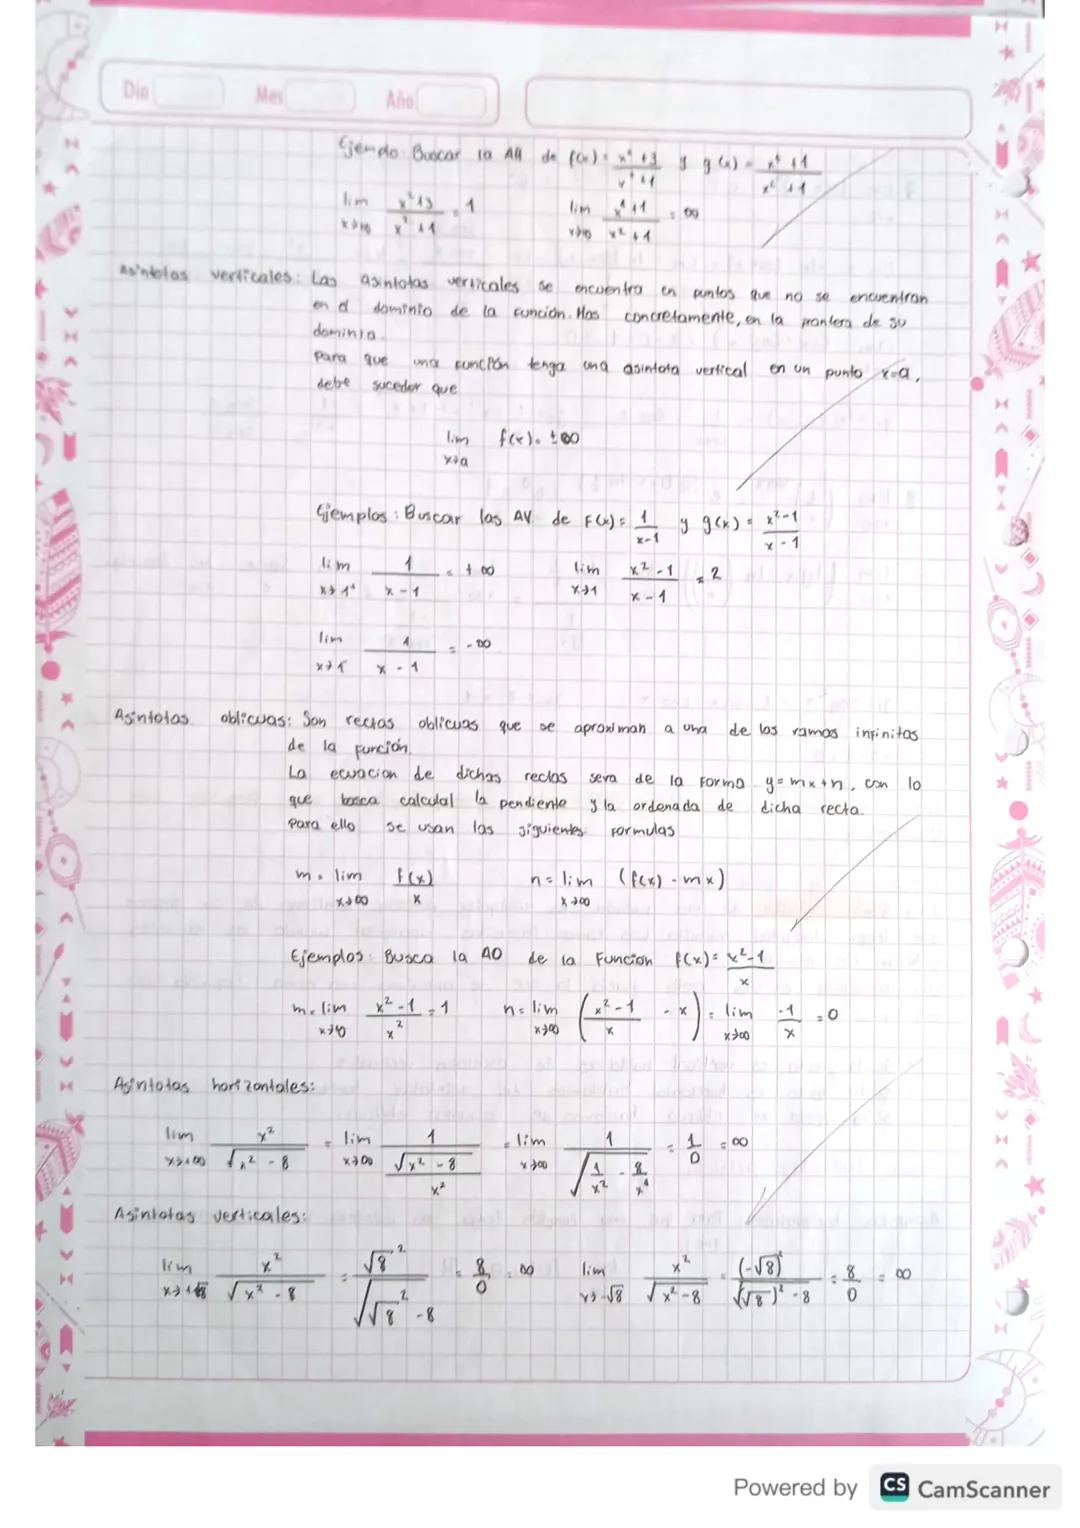 Dia Mes Año
Ejemplo: Buscar la AH de f(x) = x²+3 / x²+1 y g(x) = x⁴+1 / x²+1
lim x→∞ x²+3 / x²+1 = 1 lim x→∞ x⁴+1 / x²+1 = ∞
Asintotas verticales: Las asintotas verticales se encuentra en puntos que no se encuentran
en el dominio de la función. Mas concretamente, en la frontera de su
dominio.
Para que una función tenga una asintota vertical en un punto x=a,
debe suceder que
lim x→a f(x) = ±∞
Ejemplos: Buscar las AV de F(x) = 1 / x-1 y g(x) = x²-1 / x-1
lim x→1⁺ 1 / x-1 = +∞ lim x→1 x²-1 / x-1 = 2
lim x→1⁻ 1 / x-1 = -∞
Asintotas oblicuas: Son rectas oblicuas que se aproximan a una de las ramas infinitas
de la función.
La ecuacion de dichas rectas sera de la forma y=mx+n, con lo
que busca calculal la pendiente y la ordenada de dicha recta.
Para ello se usan las siguientes formulas
m = lim x→∞ f(x) / x n = lim x→∞ (f(x) - mx)
Ejemplos: Busca la AO de la Funcion f(x) = x²-1 / x
m = lim x→∞ x²-1 / x² = 1 n = lim x→∞ (x²-1 / x - x) = lim x→∞ -1 / x = 0
Asintotas horizontales:
lim x→+∞ x² / √x²-8 = lim x→∞ 1 / √x²-8 / x² = lim x→∞ 1 / √1/x² - 8/x⁴ = 1/0 = ∞
Asintotas verticales:
lim x→+√8 x² / √x²-8 = √8² / √√8²-8 = 8/0 = ∞ lim x→-√8 x² / √x²-8 = (-√8)² / √(√8)²-8 = 8/0 = ∞
Powered by CS CamScanner